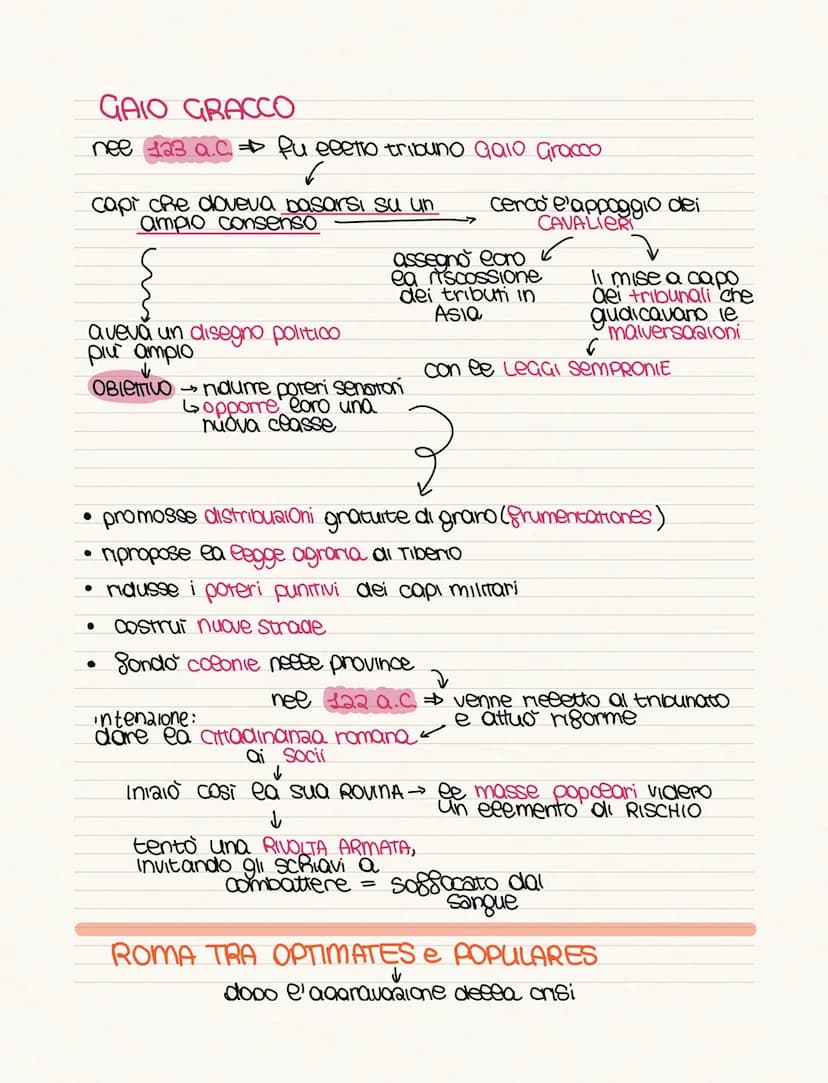 GAIO GRACCO
nel 123 a.C. ⇒ fu eletto tribuno Gaio Gracco
capì che doveva basarsi su un
ampio consenso →
cercò l'appoggio dei
CAVALIERI
assegnò loro
la riscossione
dei tributi in
Asia
li mise a capo
dei tribunali che
giudicavano le
malversazioni
con le LEGGI SEMPRONIE
aveva un disegno politico
più ampio
OBIETTIVO → ridurre poteri senatori
↳ opporre loro una
nuova classe
• promosse distribuzioni gratuite di grano (frumentationes)
• ripropose la legge agraria di Tiberio
• ridusse i poteri punitivi dei capi militari
• costruì nuove strade
• fondò colonie nelle province
nel 122 a.C. ⇒ venne rieletto al tribunato
e attuò riforme
intenzione:
dare la cittadinanza romana
ai socii
iniziò così la sua ROVINA → le masse popolari videro
un elemento di RISCHIO
tentò una RIVOLTA ARMATA,
invitando gli schiavi a
combattere = soffocato dal
sangue
ROMA TRA OPTIMATES e POPULARES
dopo l'aggravazione della crisi